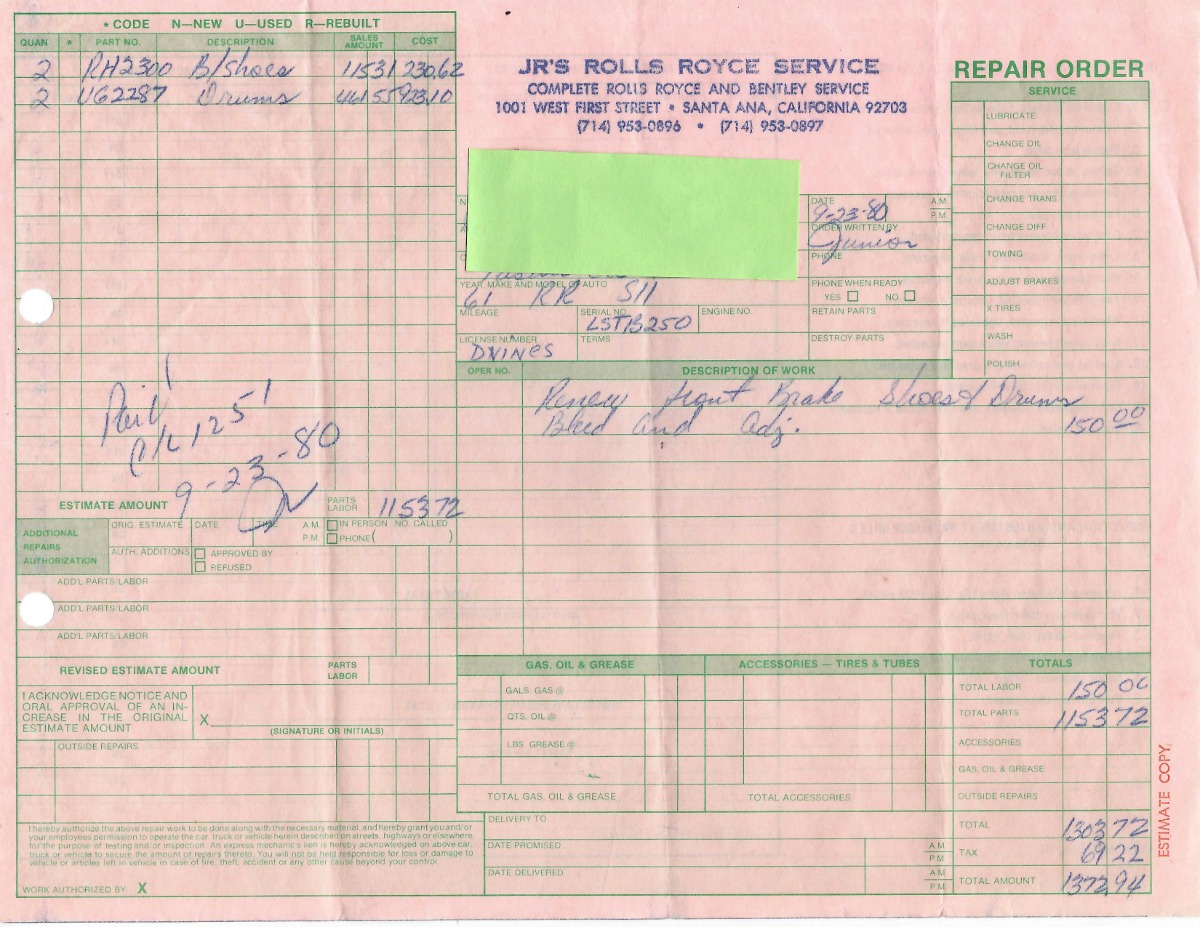 * CODE N—NEW U—USED R—REBUILT
QUAN * PART NO. DESCRIPTION SALES AMOUNT COST
2 RH2300 B/Shoes 11531 230.62
2 UG2287 Drums 461 55 923.10
JR'S ROLLS ROYCE SERVICE
COMPLETE ROLLS ROYCE AND BENTLEY SERVICE
1001 WEST FIRST STREET • SANTA ANA, CALIFORNIA 92703
(714) 953-0896 • (714) 953-0897
REPAIR ORDER
SERVICE
LUBRICATE
CHANGE OIL
CHANGE OIL FILTER
CHANGE TRANS
CHANGE DIFF
TOWING
ADJUST BRAKES
X TIRES
WASH
POLISH
DATE A.M. P.M.
9-23-80
ORDER WRITTEN BY
Junior
PHONE
YEAR, MAKE AND MODEL OF AUTO
61 RR S11
PHONE WHEN READY
YES NO
MILEAGE SERIAL NO. ENGINE NO. RETAIN PARTS
LSTB250
LICENSE NUMBER TERMS DESTROY PARTS
DVINES
OPER NO. DESCRIPTION OF WORK
Renew front Brake Shoes & Drums
Bleed and Adj. 150 00
Paid
1251
9-23-80
ESTIMATE AMOUNT PARTS LABOR 115372
ADDITIONAL REPAIRS AUTHORIZATION
ORIG. ESTIMATE DATE TIME A.M. P.M. IN PERSON NO. CALLED PHONE ( )
AUTH. ADDITIONS APPROVED BY
REFUSED
ADD'L PARTS/LABOR
ADD'L PARTS/LABOR
ADD'L PARTS/LABOR
REVISED ESTIMATE AMOUNT PARTS LABOR
I ACKNOWLEDGE NOTICE AND
ORAL APPROVAL OF AN IN-
CREASE IN THE ORIGINAL
ESTIMATE AMOUNT
X
(SIGNATURE OR INITIALS)
OUTSIDE REPAIRS
GAS, OIL & GREASE ACCESSORIES — TIRES & TUBES TOTALS
GALS. GAS @
QTS. OIL @
LBS. GREASE @
TOTAL GAS, OIL & GREASE TOTAL ACCESSORIES
TOTAL LABOR 150 00
TOTAL PARTS 1153 72
ACCESSORIES
GAS, OIL & GREASE
OUTSIDE REPAIRS
TOTAL 1303 72
TAX 69 22
TOTAL AMOUNT 1372.94
DELIVERY TO
DATE PROMISED A.M. P.M.
DATE DELIVERED A.M. P.M.
I hereby authorize the above repair work to be done along with the necessary material, and hereby grant you and/or
your employees permission to operate the car, truck or vehicle herein described on streets, highways or elsewhere
for the purpose of testing and/or inspection. An express mechanic's lien is hereby acknowledged on above car,
truck or vehicle to secure the amount of repairs thereto. You will not be held responsible for loss or damage to
vehicle or articles left in vehicle in case of fire, theft, accident or any other cause beyond your control.
WORK AUTHORIZED BY X
ESTIMATE COPY